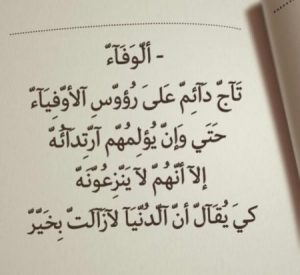 - ألّوَفَآءّ
تَآجّ دَآئِمّ عَلىَ رُؤوّسِ آلأوّفِيَآءّ
حَتَي وَإنّ يُؤلِمهُمّ آرّتِدآئُهّ
إلآ أنّهُمّ لآ يَنّزِعُونَهّ
كيَ يُقَآلّ أنّ آلدُنّيَآ لآزَآلتّ بِخَيّرّ